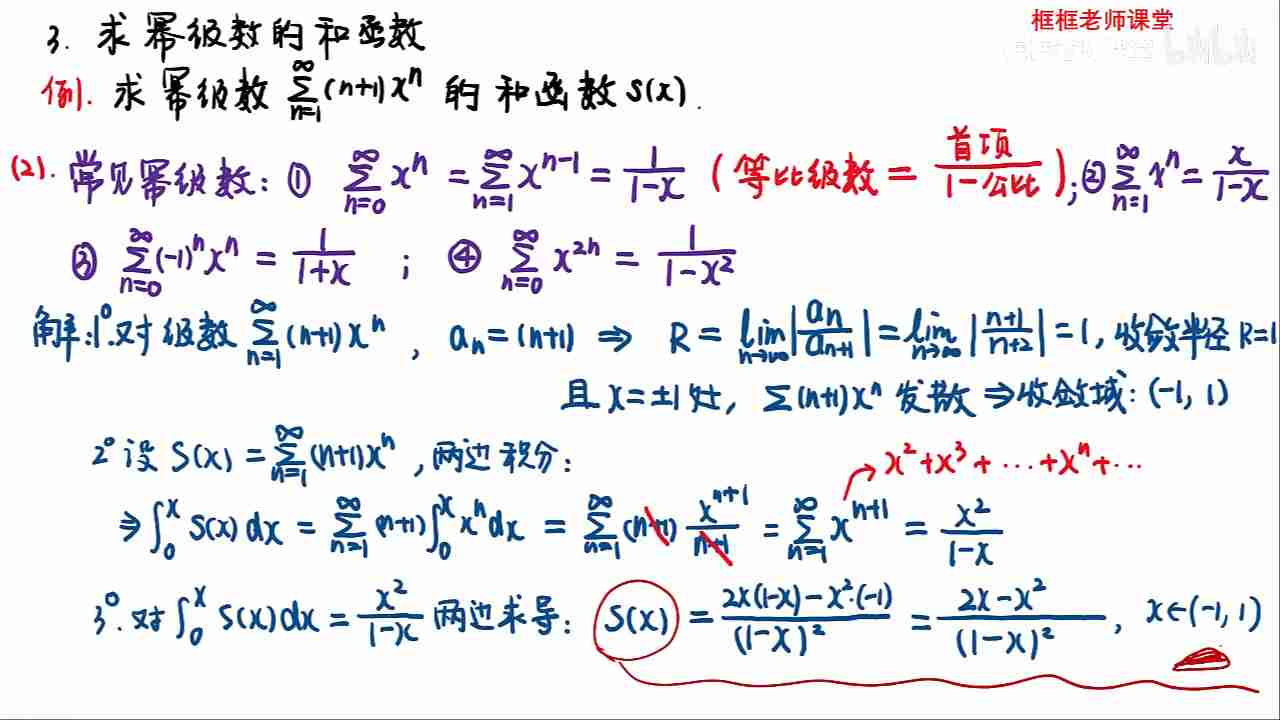 框框老师课堂
3. 求幂级数的和函数
例. 求幂级数 ∑_{n=1}^{∞}(n+1)x^n 的和函数 S(x).
(2). 常见幂级数: ① ∑_{n=0}^{∞} x^n = ∑_{n=1}^{∞} x^{n-1} = \frac{1}{1-x} (等比级数 = \frac{首项}{1-公比}); ② ∑_{n=1}^{∞} x^n = \frac{x}{1-x}
③ ∑_{n=0}^{∞} (-1)^n x^n = \frac{1}{1+x} ; ④ ∑_{n=0}^{∞} x^{2n} = \frac{1}{1-x^2}
解: 1° 对级数 ∑_{n=1}^{∞} (n+1)x^n , a_n = (n+1) ⇒ R = lim_{n→∞} |\frac{a_n}{a_{n+1}}| = lim_{n→∞} |\frac{n+1}{n+2}| = 1, 收敛半径 R=1
且 x = ±1 处, ∑(n+1)x^n 发散 ⇒ 收敛域: (-1, 1)
2° 设 S(x) = ∑_{n=1}^{∞} (n+1)x^n , 两边积分:
x^2+x^3+⋯+x^n+⋯
⇒ ∫_0^x S(x) dx = ∑_{n=1}^{∞} (n+1) ∫_0^x x^n dx = ∑_{n=1}^{∞} (n+1) \frac{x^{n+1}}{n+1} = ∑_{n=1}^{∞} x^{n+1} = \frac{x^2}{1-x}
3°. 对 ∫_0^x S(x) dx = \frac{x^2}{1-x} 两边求导: S(x) = \frac{2x(1-x)-x^2·(-1)}{(1-x)^2} = \frac{2x-x^2}{(1-x)^2} , x∈(-1, 1)